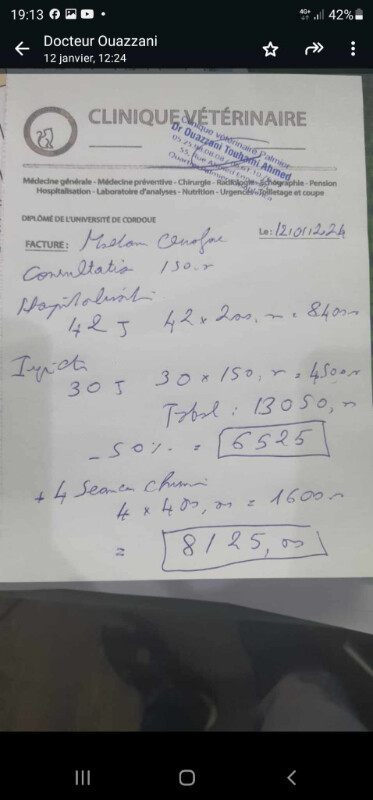 19:13
4G+ 42%
Docteur Ouazzani
12 janvier, 12:24
CLINIQUE VÉTÉRINAIRE
Clinique vétérinaire
Dr Ouazzani Touhami Ahmed
Médecine générale - Médecine préventive - Chirurgie - Radiologie - Echographie - Pension
Hospitalisation - Laboratoire d'analyses - Nutrition - Urgences - Toilletage et coupe
DIPLÔMÉ DE L'UNIVERSITÉ DE CORDOUE
Le : 12/01/224
FACTURE : Madam
Consultatio 150,
Hospitalisati
42 J 42 x 200, = 8400
Injecti
30 J 30 x 150, = 4500
Total : 13050,
- 50 % = 6525
+ 4 Seance Chimi
4 x 400, = 1600
= 8125,